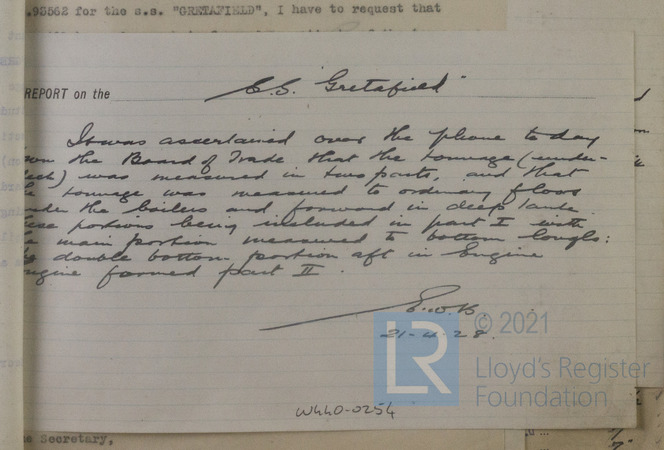 .93562 for the s.s. "GRETAFIELD", I have to request that
REPORT on the S.S. "Gretafield"
It was ascertained over the 'phone to-day
the Board of Trade that the tonnage (under-
was measured in two parts, and that
tonnage was measured to ordinary floors
the boilers and forward in deep tank.
portions being included in part I with
main portion measured to bottom longls:
double bottom portion aft in Engine
formed part II.
E.W.B.
21-4-28.
© 2021
LR
Lloyd's Register
Foundation
W440-0254
Secretary,